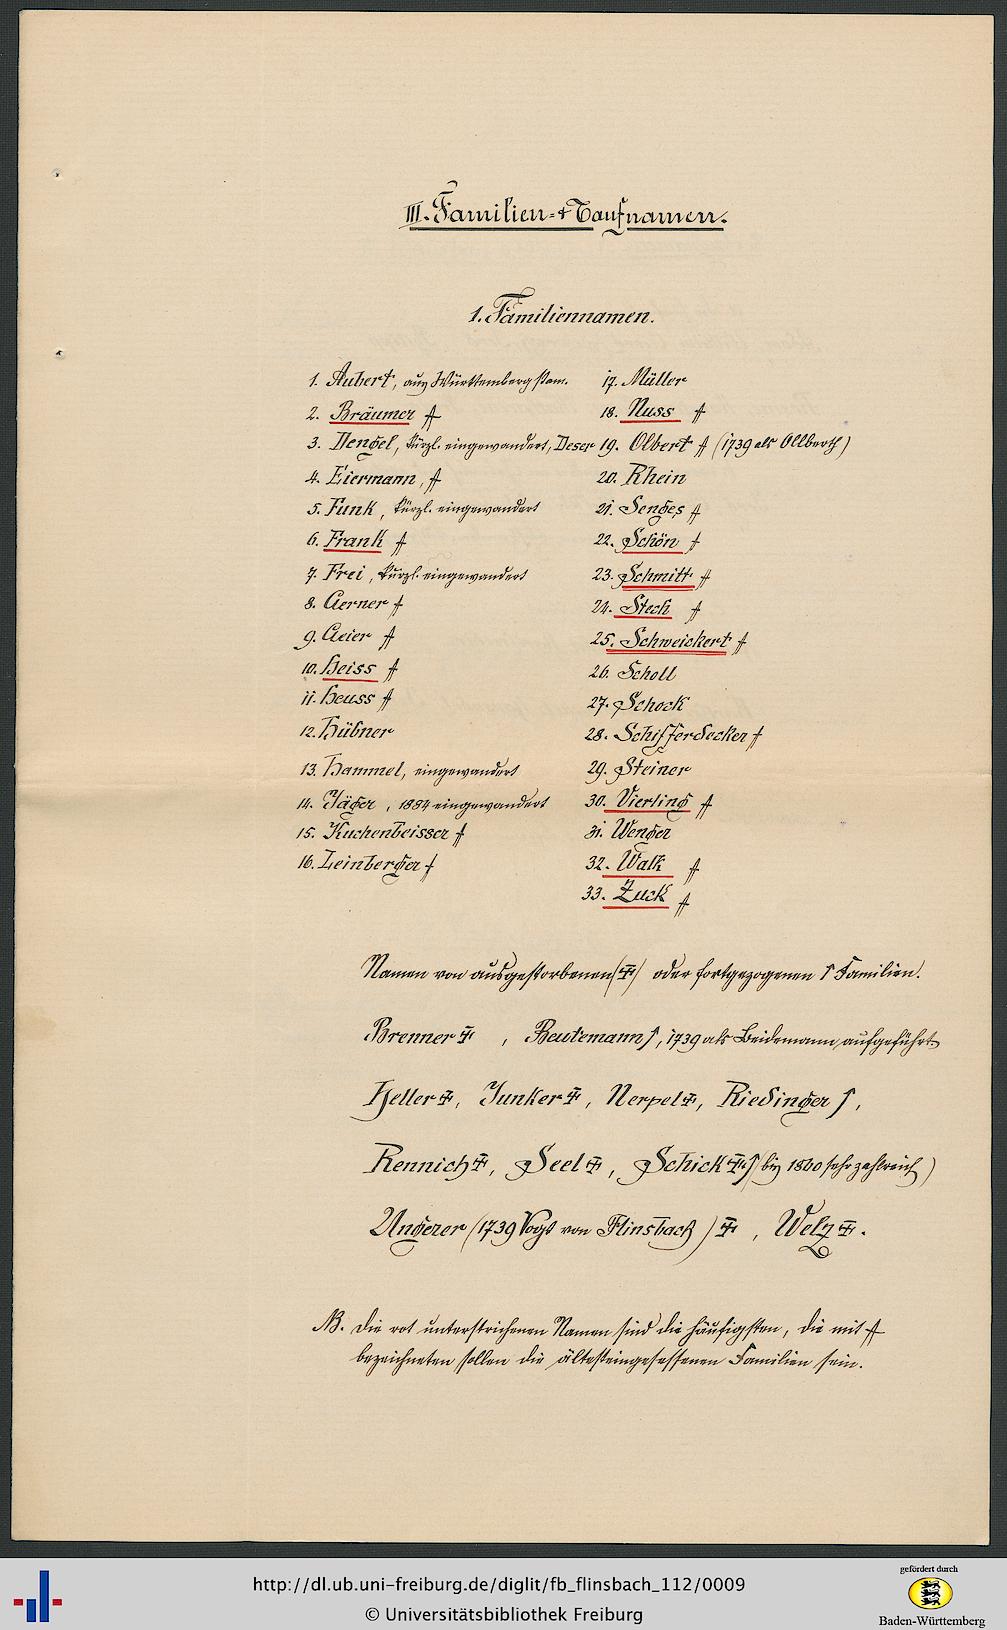 III. Familien- + Taufnamen.
1. Familiennamen.
1. Aubert, aus Württemberg stam.
2. Bräumer ⨎
3. Dengel, kürzl. eingewandert, Deser
4. Eiermann, ⨎
5. Funk, kürzl. eingewandert
6. Frank ⨎
7. Frei, kürzl. eingewandert
8. Gerner ⨎
9. Geier ⨎
10. Heiss ⨎
11. Heuss ⨎
12. Hübner
13. Hammel, eingewandert
14. Jäger, 1884 eingewandert
15. Kuchenbeisser ⨎
16. Leinberger ⨎
17. Müller
18. Nuss ⨎
19. Olbert ⨎ (1739 als Ollberth)
20. Rhein
21. Senges ⨎
22. Schön ⨎
23. Schmitt ⨎
24. Stech ⨎
25. Schweickert ⨎
26. Scholl
27. Schock
28. Schifferdecker ⨎
29. Steiner
30. Vierling ⨎
31. Wenger
32. Walk ⨎
33. Zuck ⨎
Namen von ausgestorbenen (‡) oder fortgezogenen ↑ Familien.
Brenner ‡, Beutemann ↑, 1739 als Beidemann aufgeführt
Heller ‡, Junker ‡, Nerpel ‡, Riedinger ↑,
Rennich ‡, Seel ‡, Schick ‡ ↑ (bis 1860 sehr zahlreich)
Ungerer (1739 Vogt von Flinsbach) ‡, Welz ‡.
NB. Die rot unterstrichenen Namen sind die häufigsten, die mit ⨎
bezeichneten sollen die ältesteingesessenen Familien sein.
http://dl.ub.uni-freiburg.de/diglit/fb_flinsbach_112/0009
© Universitätsbibliothek Freiburg
gefördert durch
Baden-Württemberg